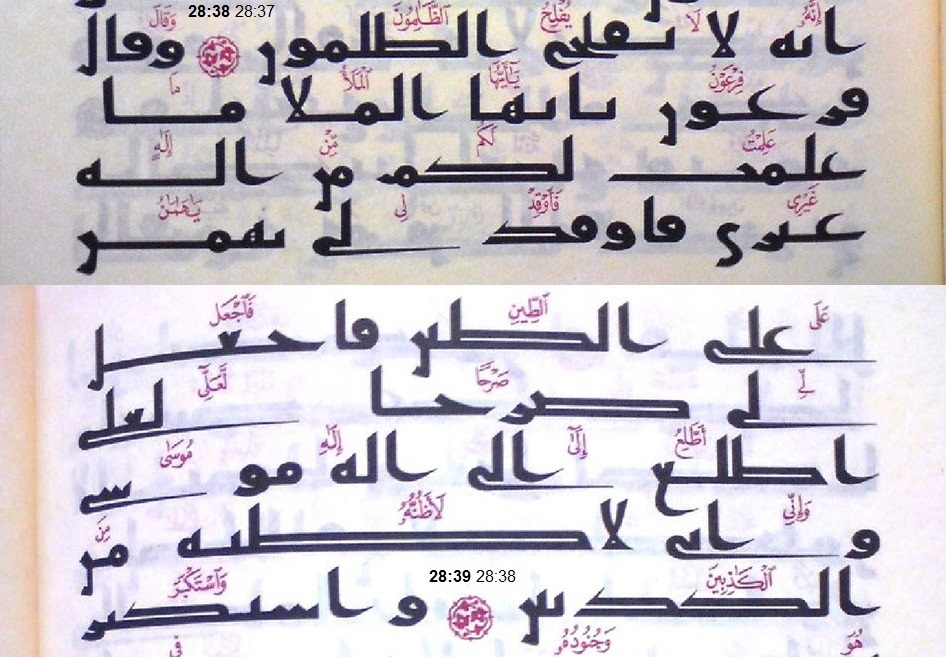 28:38 28:37
إِنَّهُۥ لَا يُفْلِحُ ٱلظَّٰلِمُونَ وَقَالَ
انه لا يفلح الظلمون وقال
فِرْعَوْنُ يَٰٓأَيُّهَا ٱلْمَلَأُ مَا
فرعون يايها الملا ما
عَلِمْتُ لَكُم مِّنْ إِلَٰهٍ
علمت لكم من اله
غَيْرِى فَأَوْقِدْ لِى يَٰهَٰمَٰنُ
غيري فاوقد لي يهمن
عَلَى ٱلطِّينِ فَٱجْعَل
على الطين فاجعل
لِّى صَرْحًا لَّعَلِّىٓ
لي صرحا لعلي
أَطَّلِعُ إِلَىٰٓ إِلَٰهِ مُوسَىٰ
اطلع الى اله موسى
وَإِنِّى لَأَظُنُّهُۥ مِنَ
واني لاظنه من
28:39 28:38
ٱلْكَٰذِبِينَ وَٱسْتَكْبَرَ
الكذبين واستكبر
هُوَ وَجُنُودُهُۥ فِى